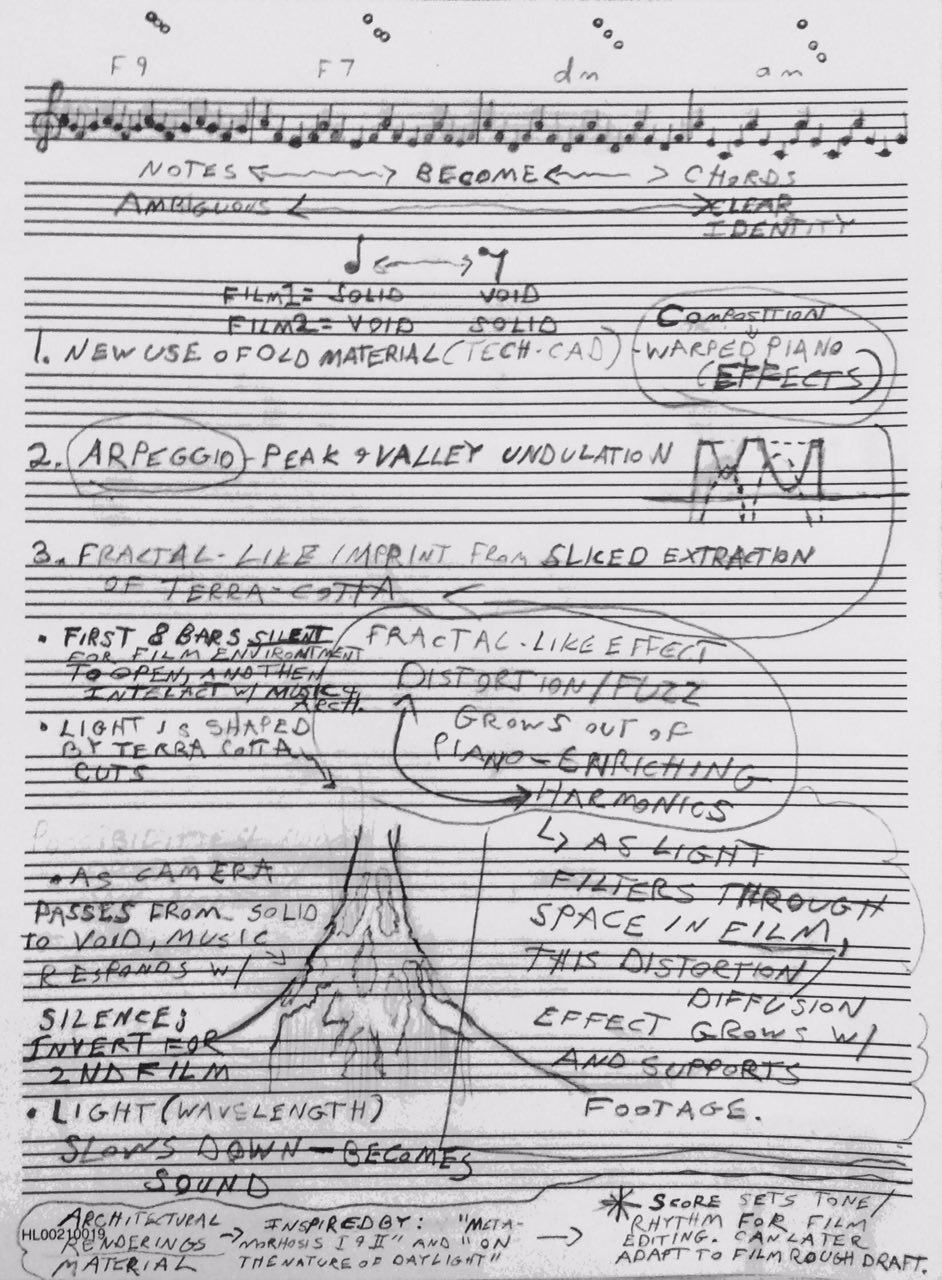 F9 F7 dm am
NOTES BECOME CHORDS
AMBIGUOUS CLEAR
IDENTITY
FILM1= SOLID VOID
FILM2= VOID SOLID
COMPOSITION
1. NEW USE OF OLD MATERIAL (TECH-CAD) - WARPED PIANO
(EFFECTS)
2. ARPEGGIO - PEAK & VALLEY UNDULATION
3. FRACTAL-LIKE IMPRINT FROM SLICED EXTRACTION
OF TERRA-COTTA
• FIRST 8 BARS SILENT
FOR FILM ENVIRONTMENT
TO OPEN, AND THEN
INTELACT W/ MUSIC &
ARCH.
• LIGHT IS SHAPED
BY TERRA COTTA
CUTS
FRACTAL-LIKE EFFECT
DISTORTION/FUZZ
GROWS OUT OF
PIANO-ENRICHING
HARMONICS
↳ AS LIGHT
FILTERS THROUGH
SPACE IN FILM,
THIS DISTORTION/
DIFFUSION
EFFECT GROWS W/
AND SUPPORTS
FOOTAGE.
• AS CAMERA
PASSES FROM SOLID
TO VOID, MUSIC
RESPONDS W/
SILENCE;
INVERT FOR
2ND FILM
• LIGHT (WAVELENGTH)
SLOWS DOWN - BECOMES
SOUND
ARCHITECTURAL
RENDERINGS
MATERIAL
HL00210019
→ INSPIRED BY: "META-
MORHOSIS I & II" AND "ON
THE NATURE OF DAYLIGHT"
→ * SCORE SETS TONE/
RHYTHM FOR FILM
EDITING. CAN LATER
ADAPT TO FILM ROUGH DRAFT.